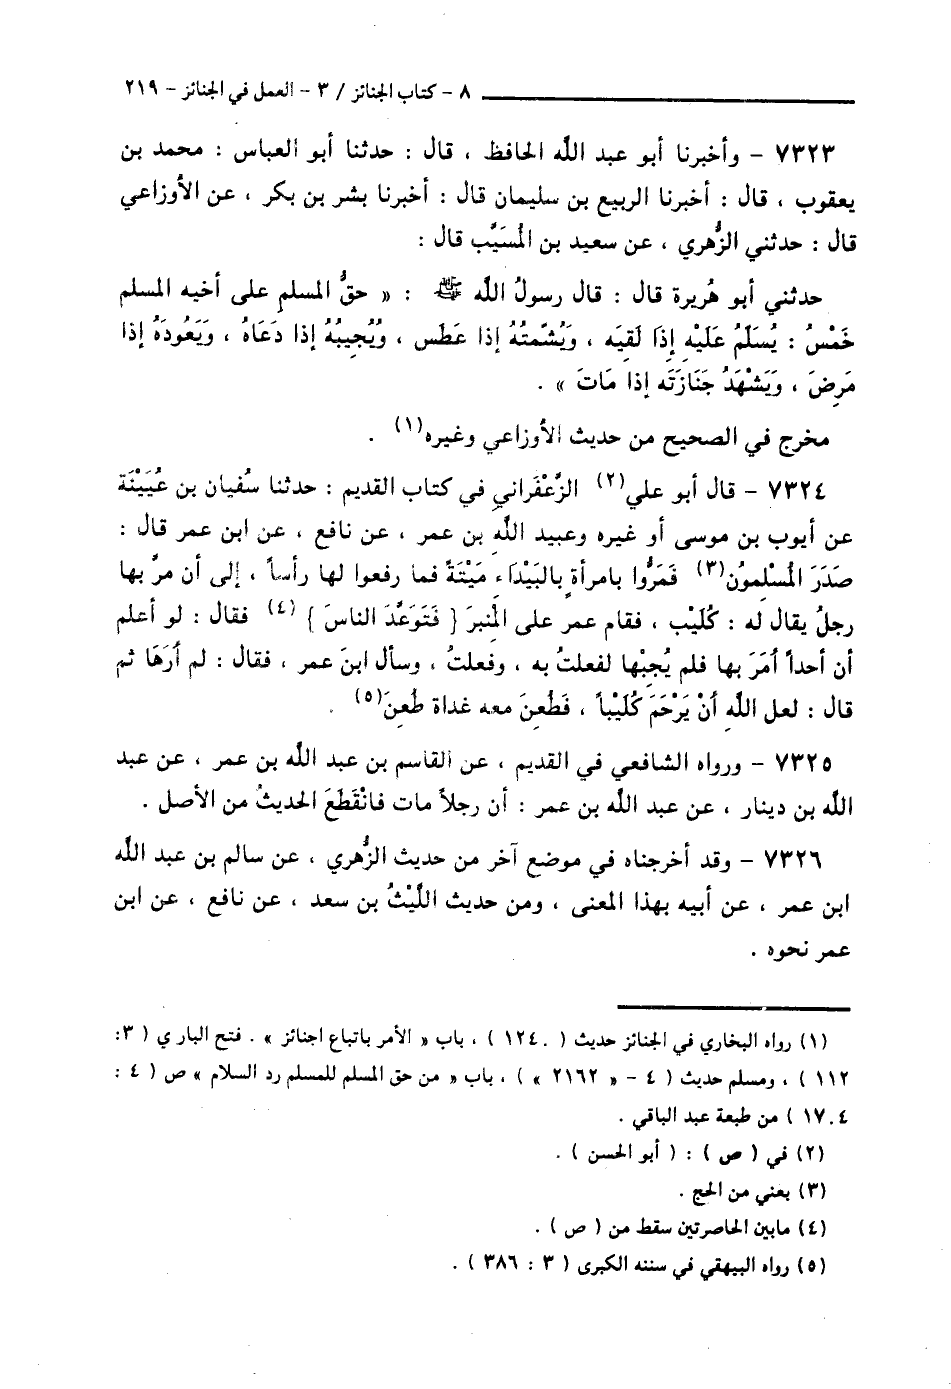 ٨ - كتاب الجنائز / ٣ - العمل في الجنائز - ٢١٩
٧٣٢٣ - وأخبرنا أبو عبد الله الحافظ ، قال : حدثنا أبو العباس : محمد بن
يعقوب ، قال : أخبرنا الربيع بن سليمان قال : أخبرنا بشر بن بكر ، عن الأوزاعي
قال : حدثني الزُّهري ، عن سعيد بن المُسَيَّب قال :
حدثني أبو هُريرة قال : قال رسولُ الله ﷺ : « حقُّ المسلم على أخيه المسلم
خَمْسُ : يُسَلِّمُ عَلَيْهِ إِذَا لَقِيَه ، وَيُشَمِّتُهُ إذا عَطَس ، ويُجِيبُهُ إذا دَعَاهُ ، وَيَعُودَهُ إذا
مَرِضَ ، وَيَشْهَدُ جَنَازَتَه إذا مَاتَ » .
مخرج في الصحيح من حديث الأوزاعي وغيره(١) .
٧٣٢٤ - قال أبو علي(٢) الزَّعْفَراني في كتاب القديم : حدثنا سُفيان بن عُيَيْنَة
عن أيوب بن موسى أو غيره وعبيد الله بن عمر ، عن نافع ، عن ابن عمر قال :
صَدَرَ المُسْلِمونُ(٣) فَمَرُّوا بامرأةٍ بالبَيْدَاء مَيْتَةً فما رفعوا لها رأساً ، إلى أن مرَّ بها
رجلُ يقال له : كُلَيْب ، فقام عمر على المِنبرَ { فَتَوَعَّدَ الناسَ } (٤) فقال : لو أعلم
أن أحداً أمَرَ بها فلم يُجِبْها لفعلتُ به ، وفعلتُ ، وسأل ابنَ عمر ، فقال : لم أرَهَا ثم
قال : لعل الله أنْ يَرْحَمَ كُلَيْباً ، فَطُعِنَ معه غداة طُعِنَ(٥) .
٧٣٢٥ - ورواه الشافعي في القديم ، عن القاسم بن عبد الله بن عمر ، عن عبد
الله بن دينار ، عن عبد الله بن عمر : أن رجلاً مات فانْقَطَعَ الحديثُ من الأصل .
٧٣٢٦ - وقد أخرجناه في موضع آخر من حديث الزُّهري ، عن سالم بن عبد الله
ابن عمر ، عن أبيه بهذا المعنى ، ومن حديث اللَّيْثُ بن سعد ، عن نافع ، عن ابن
عمر نحوه .
(١) رواه البخاري في الجنائز حديث ( ١٢٤٠ ) ، باب « الأمر باتباع اجنائز » . فتح الباري ( ٣ :
١١٢ ) ، ومسلم حديث ( ٤ - « ٢١٦٢ » ) ، باب « من حق المسلم للمسلم رد السلام » ص ( ٤ :
١٧٠٤ ) من طبعة عبد الباقي .
(٢) في ( ص ) : ( أبو الحسن ) .
(٣) يعني من الحج .
(٤) مابين الحاصرتين سقط من ( ص ) .
(٥) رواه البيهقي في سننه الكبرى ( ٣ : ٣٨٦ ) .